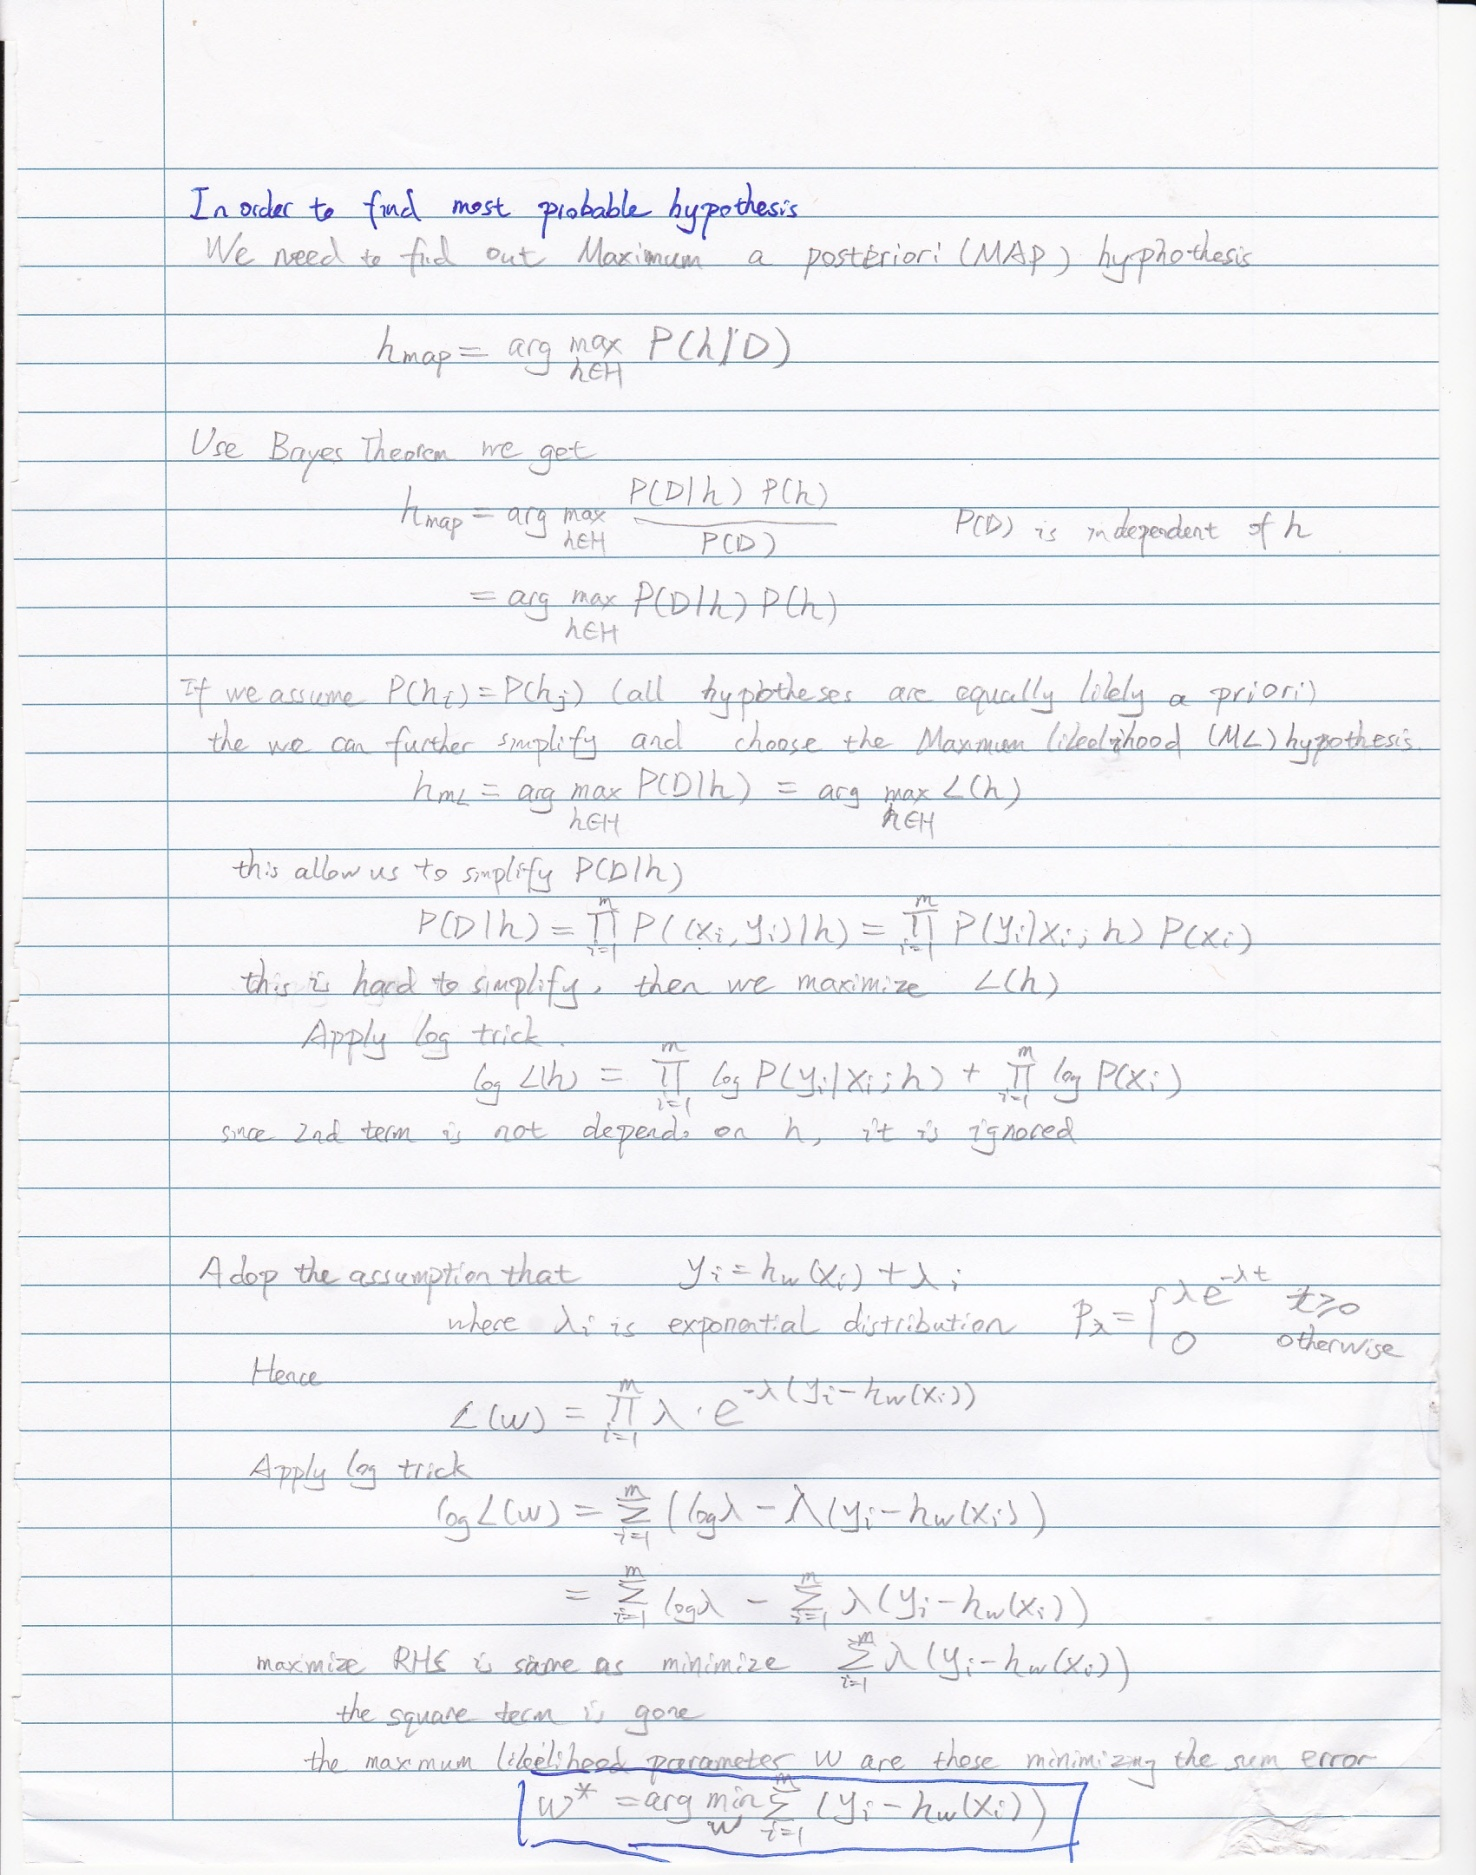 In order to find most probable hypothesis
We need to fid out Maximum a posteriori (MAP) hyphothesis
h_map = arg max_{h∈H} P(h|D)
Use Bayes Theorem we get
h_map = arg max_{h∈H} P(D|h) P(h) / P(D)    P(D) is independent of h
= arg max_{h∈H} P(D|h) P(h)
If we assume P(h_i) = P(h_j) (all hypotheses are equally likely a priori)
the we can further simplify and choose the Maxmum likelihood (ML) hypothesis.
h_ML = arg max_{h∈H} P(D|h) = arg max_{h∈H} L(h)
this allow us to simplify P(D|h)
P(D|h) = ∏_{i=1}^{m} P((x_i, y_i)|h) = ∏_{i=1}^{m} P(y_i|x_i; h) P(x_i)
this is hard to simplify, then we maximize L(h)
Apply log trick.
log L(h) = ∏_{i=1}^{m} log P(y_i|x_i; h) + ∏_{i=1}^{m} log P(x_i)
since 2nd term is not depends on h, it is ignored
Adop the assumption that    y_i = h_w(x_i) + λ_i
where λ_i is exponential distribution    p_λ = { λe^{-λt}  t≥0
0  otherwise
Hence
L(w) = ∏_{i=1}^{m} λ · e^{-λ(y_i - h_w(x_i))}
Apply log trick
log L(w) = ∑_{i=1}^{m} (log λ - λ(y_i - h_w(x_i))
= ∑_{i=1}^{m} log λ - ∑_{i=1}^{m} λ(y_i - h_w(x_i))
maxmize RHS is same as minimize ∑_{i=1}^{m} λ(y_i - h_w(x_i))
the square term is gone
the maxmum likelihood parameter w are those minimizing the sum error
w* = arg min_w ∑_{i=1}^{m} (y_i - h_w(x_i))